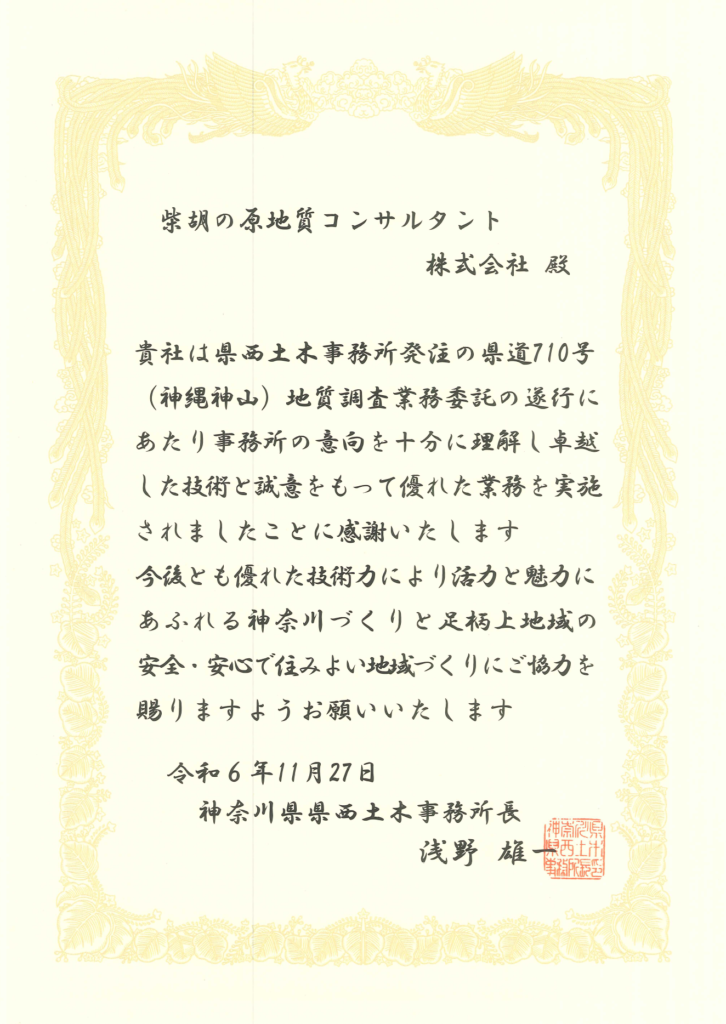 柴胡の原地質コンサルタント
株式会社 殿
貴社は県西土木事務所発注の県道710号
(神縄神山)地質調査業務委託の遂行に
あたり事務所の意向を十分に理解し卓越
した技術と誠意をもって優れた業務を実施
されましたことに感謝いたします
今後とも優れた技術力により活力と魅力に
あふれる神奈川づくりと足柄上地域の
安全・安心で住みよい地域づくりにご協力を
賜りますようお願いいたします
令和6年11月27日
神奈川県県西土木事務所長
浅野 雄一